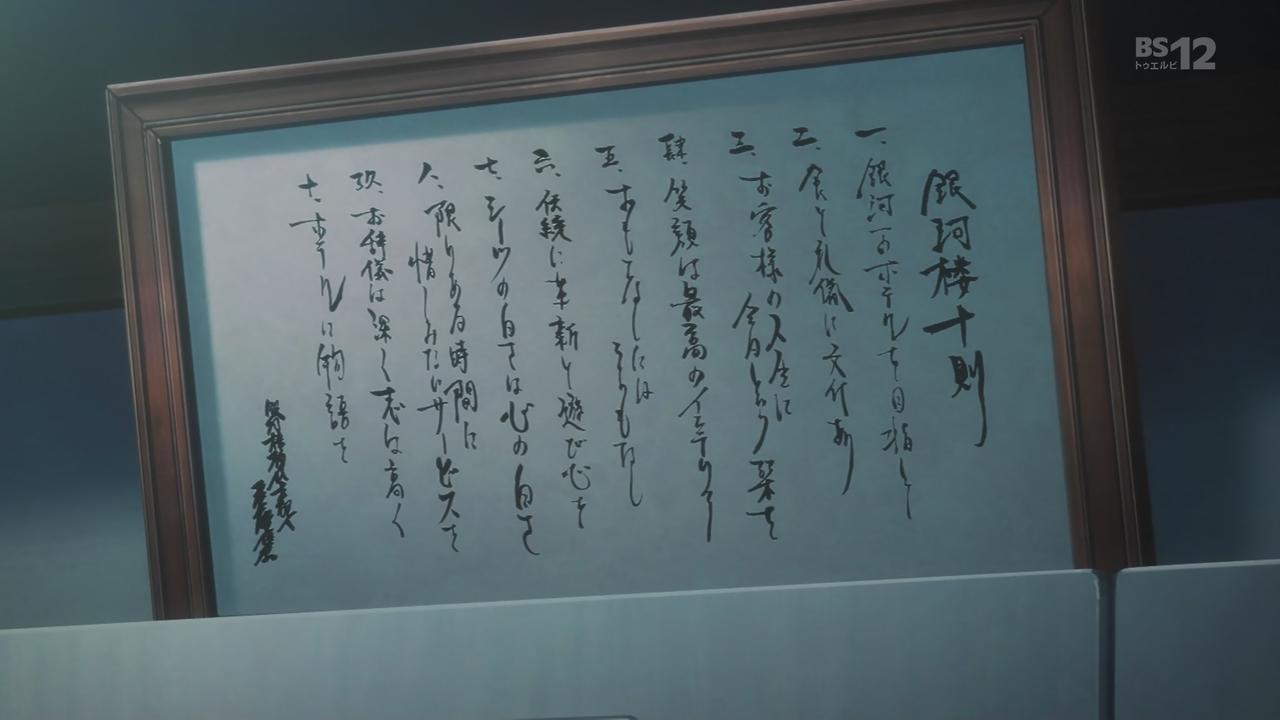 銀河楼十則
一、銀河一のホテルを目指して
二、食と礼儀に天井あり
三、お客様の人生に
今日という栞を
肆、笑顔は最高のインテリア
五、おもてなしには
うらもなし
六、伝統に革新と遊び心を
七、シーツの白さは心の白さ
八、限りある時間に
惜しみないサービスを
玖、お辞儀は深く志は高く
十、ホテルに物語を
BS12
トゥエルビ